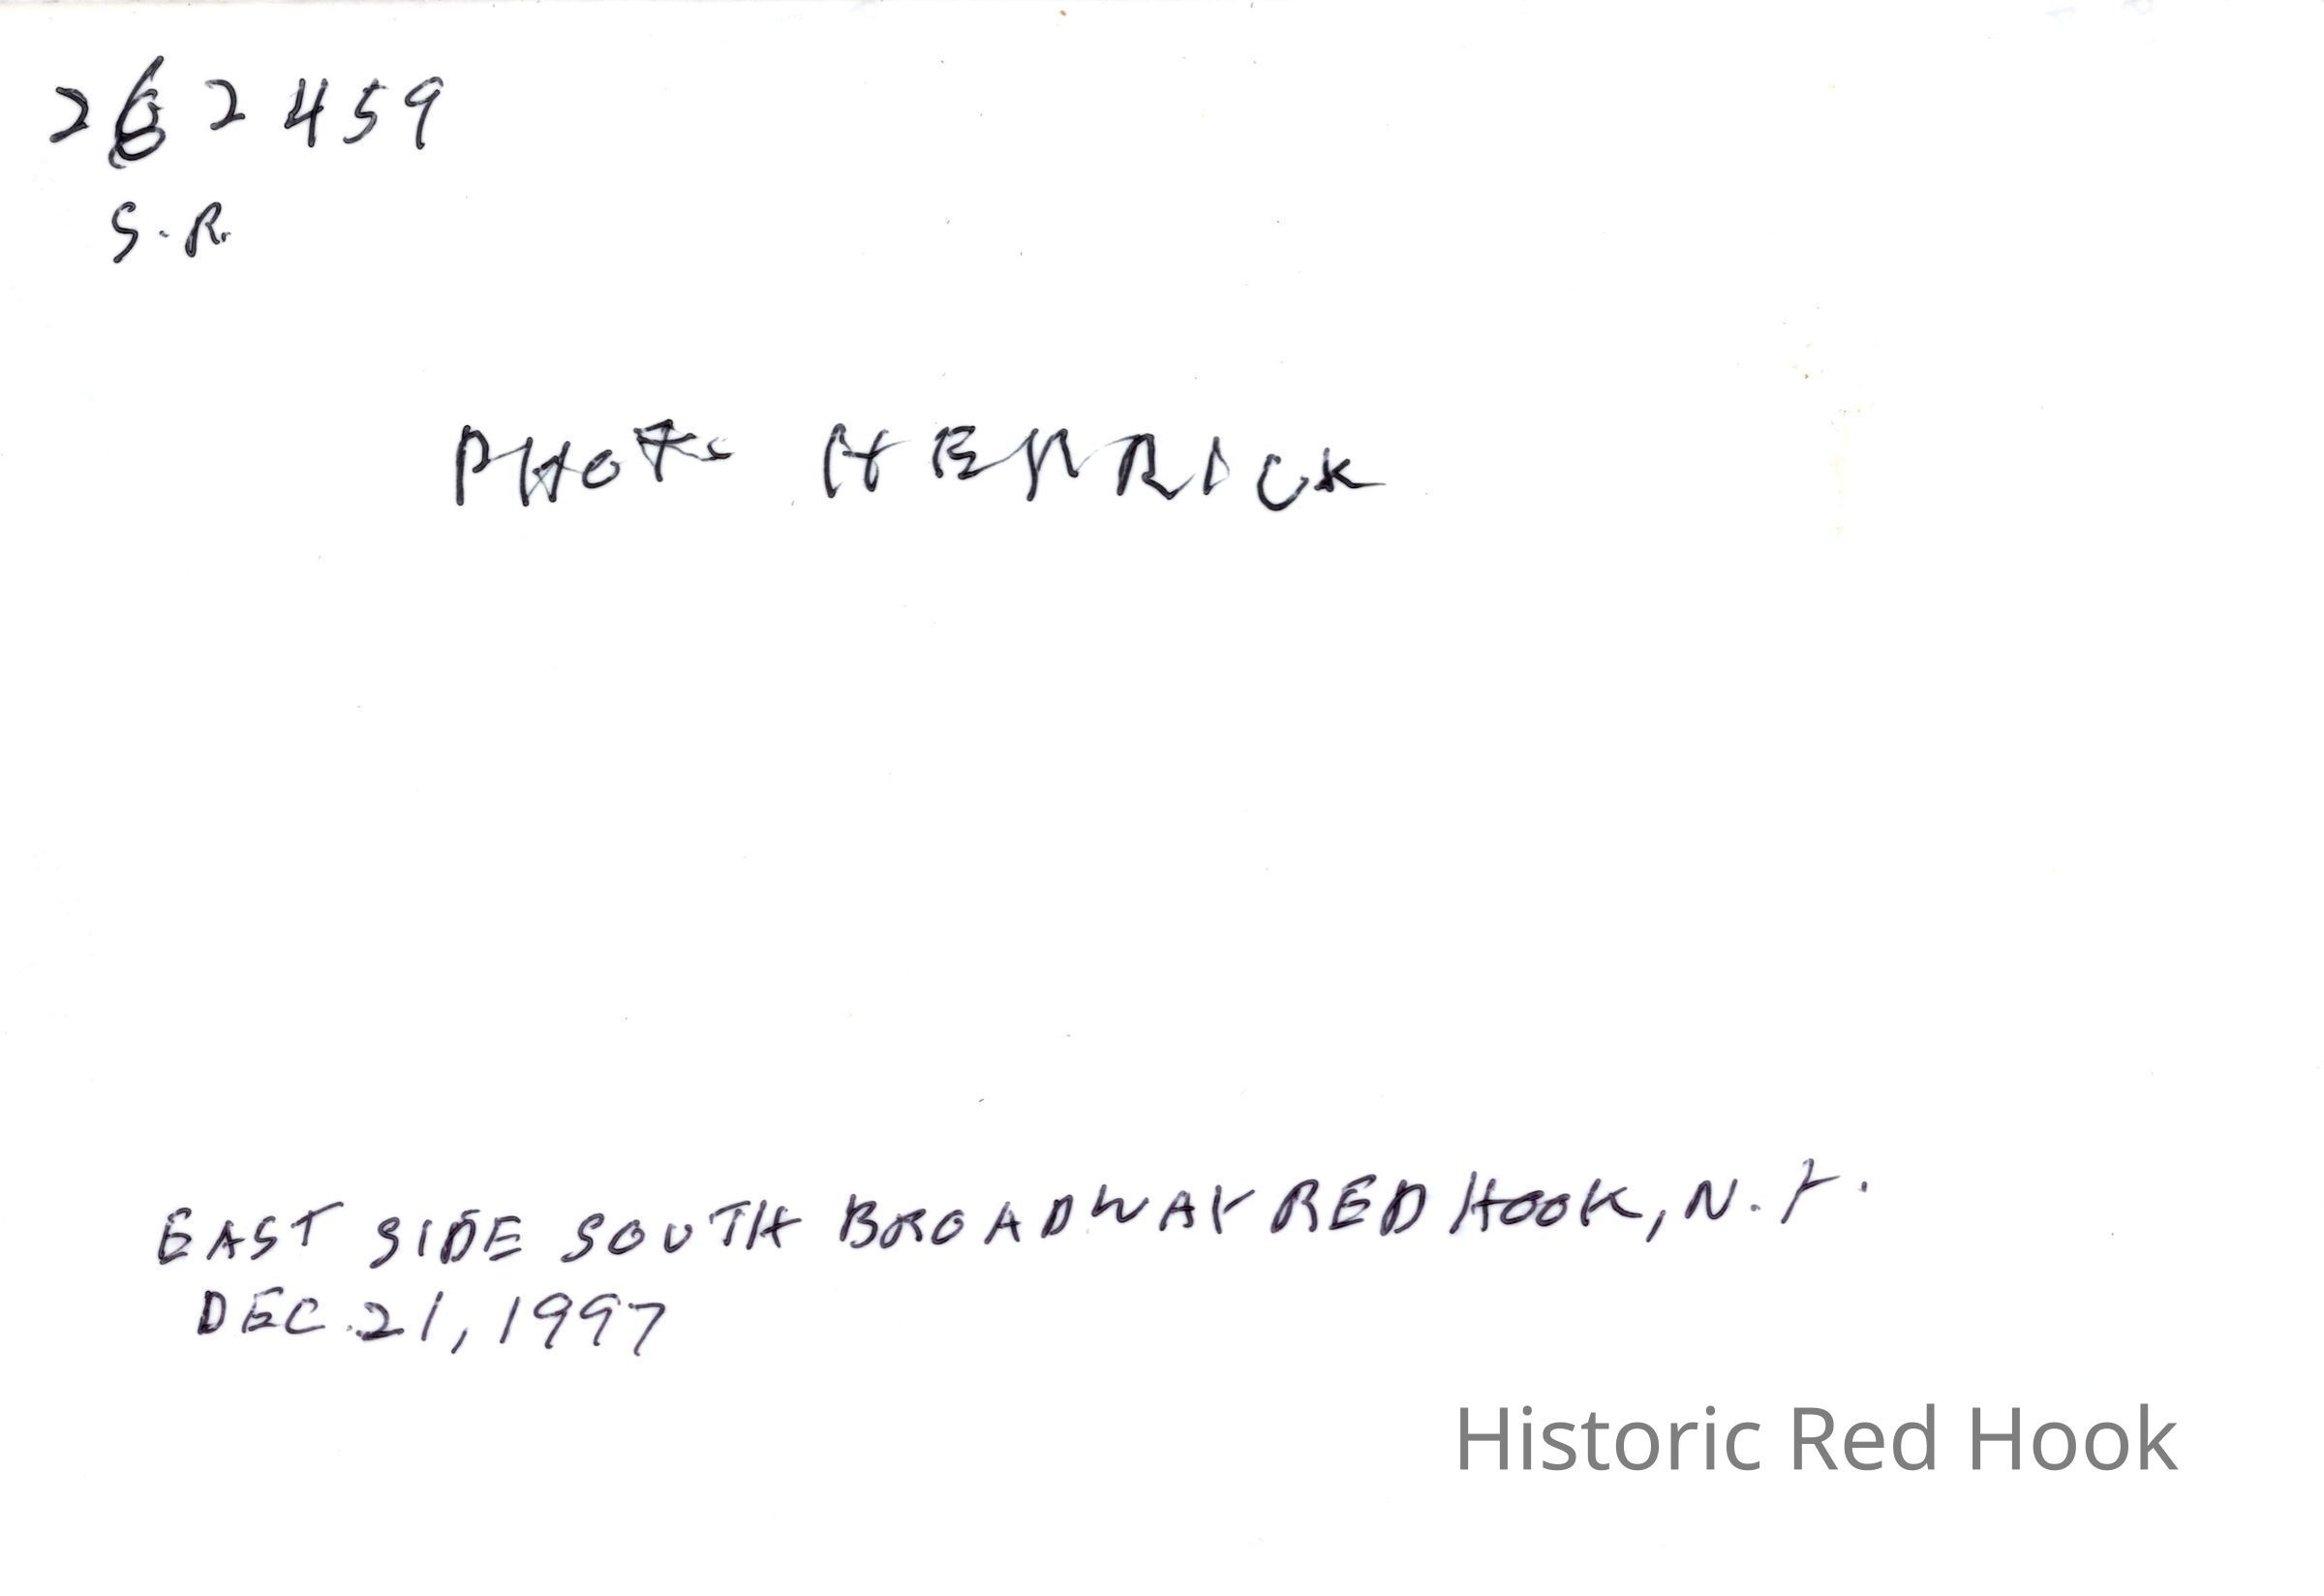 262459
S.R.
PHOTO HERRICK
EAST SIDE SOUTH BROADWAY RED HOOK, N.Y.
DEC. 21, 1997
Historic Red Hook